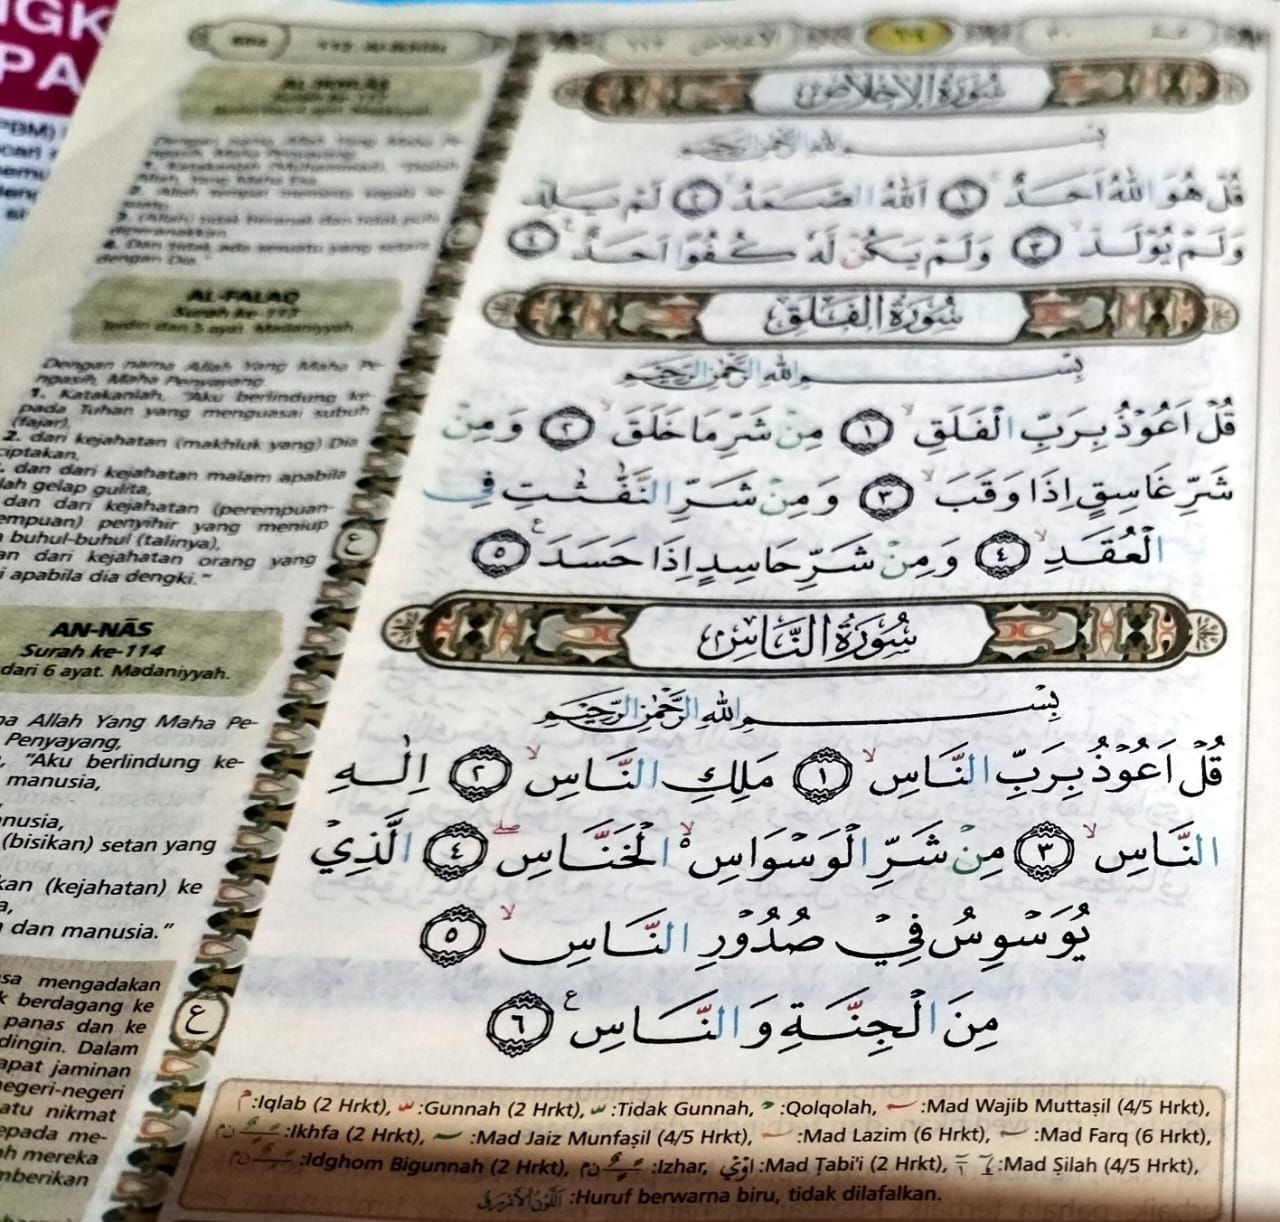 IGK
PA
PBM)
AL-IKHLAS
Dengan nama Allah Yang Maha Pe-
ngasih, Maha Penyayang
1. Katakanlah (Muhammad), "Dialah
Allah, Yang Maha Esa.
3. (Allah) tidak beranak dan tidak pula
diperanakkan.
4. Dan tidak ada sesuatu yang setara
dengan Dia."
AL-FALAQ
Surah ke-113
Terdiri dari 5 ayat. Madaniyyah.
Dengan nama Allah Yang Maha Pe-
ngasih, Maha Penyayang
1. Katakanlah, "Aku berlindung ke-
pada Tuhan yang menguasai subuh
(fajar),
2. dari kejahatan (makhluk yang) Dia
ciptakan,
dan dari kejahatan malam apabila
lah gelap gulita,
dan dari kejahatan (perempuan-
empuan) penyihir yang meniup
buhul-buhul (talinya),
an dari kejahatan orang yang
i apabila dia dengki."
AN-NĀS
Surah ke-114
dari 6 ayat. Madaniyyah.
ma Allah Yang Maha Pe-
Penyayang,
"Aku berlindung ke-
manusia,
nusia,
(bisikan) setan yang
kan (kejahatan) ke
a,
dan manusia."
sa mengadakan
k berdagang ke
panas dan ke
dingin. Dalam
apat jaminan
negeri-negeri
atu nikmat
epada me-
h mereka
mberikan
ع
سُوْرَةُ الْإِخْلَاصِ
بِسْمِ اللهِ الرَّحْمٰنِ الرَّحِيْمِ
قُلْ هُوَ اللهُ اَحَدٌ ۚ ١ اَللهُ الصَّمَدُ ۚ ٢ لَمْ يَلِدْ
وَلَمْ يُوْلَدْ ۙ ٣ وَلَمْ يَكُنْ لَّهٗ كُفُوًا اَحَدٌ ࣖ ٤
سُوْرَةُ الْفَلَقِ
بِسْمِ اللهِ الرَّحْمٰنِ الرَّحِيْمِ
قُلْ اَعُوْذُ بِرَبِّ الْفَلَقِ ۙ ١ مِنْ شَرِّ مَا خَلَقَ ۙ ٢ وَمِنْ
شَرِّ غَاسِقٍ اِذَا وَقَبَ ۙ ٣ وَمِنْ شَرِّ النَّفّٰثٰتِ فِى
الْعُقَدِ ۙ ٤ وَمِنْ شَرِّ حَاسِدٍ اِذَا حَسَدَ ࣖ ٥
سُوْرَةُ النَّاسِ
بِسْمِ اللهِ الرَّحْمٰنِ الرَّحِيْمِ
قُلْ اَعُوْذُ بِرَبِّ النَّاسِ ۙ ١ مَلِكِ النَّاسِ ۙ ٢ اِلٰهِ
النَّاسِ ۙ ٣ مِنْ شَرِّ الْوَسْوَاسِ ەۙ الْخَنَّاسِ ۖ ٤ الَّذِيْ
يُوَسْوِسُ فِيْ صُدُوْرِ النَّاسِ ۙ ٥
مِنَ الْجِنَّةِ وَالنَّاسِ ࣖ ٦
:Iqlab (2 Hrkt), :Gunnah (2 Hrkt), :Tidak Gunnah, :Qolqolah, :Mad Wajib Muttaṣil (4/5 Hrkt),
:Ikhfa (2 Hrkt), :Mad Jaiz Munfaṣil (4/5 Hrkt), :Mad Lazim (6 Hrkt), :Mad Farq (6 Hrkt),
:Idghom Bigunnah (2 Hrkt), :Izhar, :Mad Ṭabi'i (2 Hrkt), :Mad Ṣilah (4/5 Hrkt),
:Huruf berwarna biru, tidak dilafalkan.